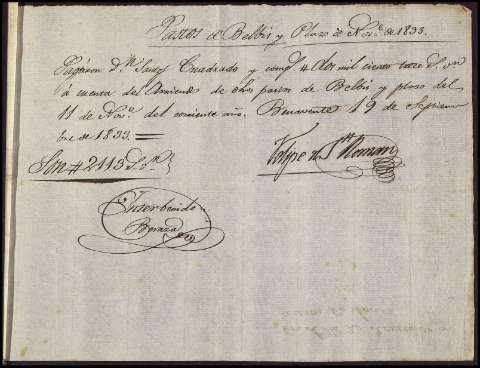 Pastos de Belbis y Plazo de Nov.e de 1833.
Pagaron D.n Sant.o Cuadrado y comp.s # dos mil ciento trece r.s vn
á cuenta del Arriendo de dhos pastos de Belbis y plazo del
11 de Nov.e del corriente año. Benavente 19 de Septiem
bre de 1833
Son # 2113 r.s v.n
Felipe de S.n Roman
Intervenido